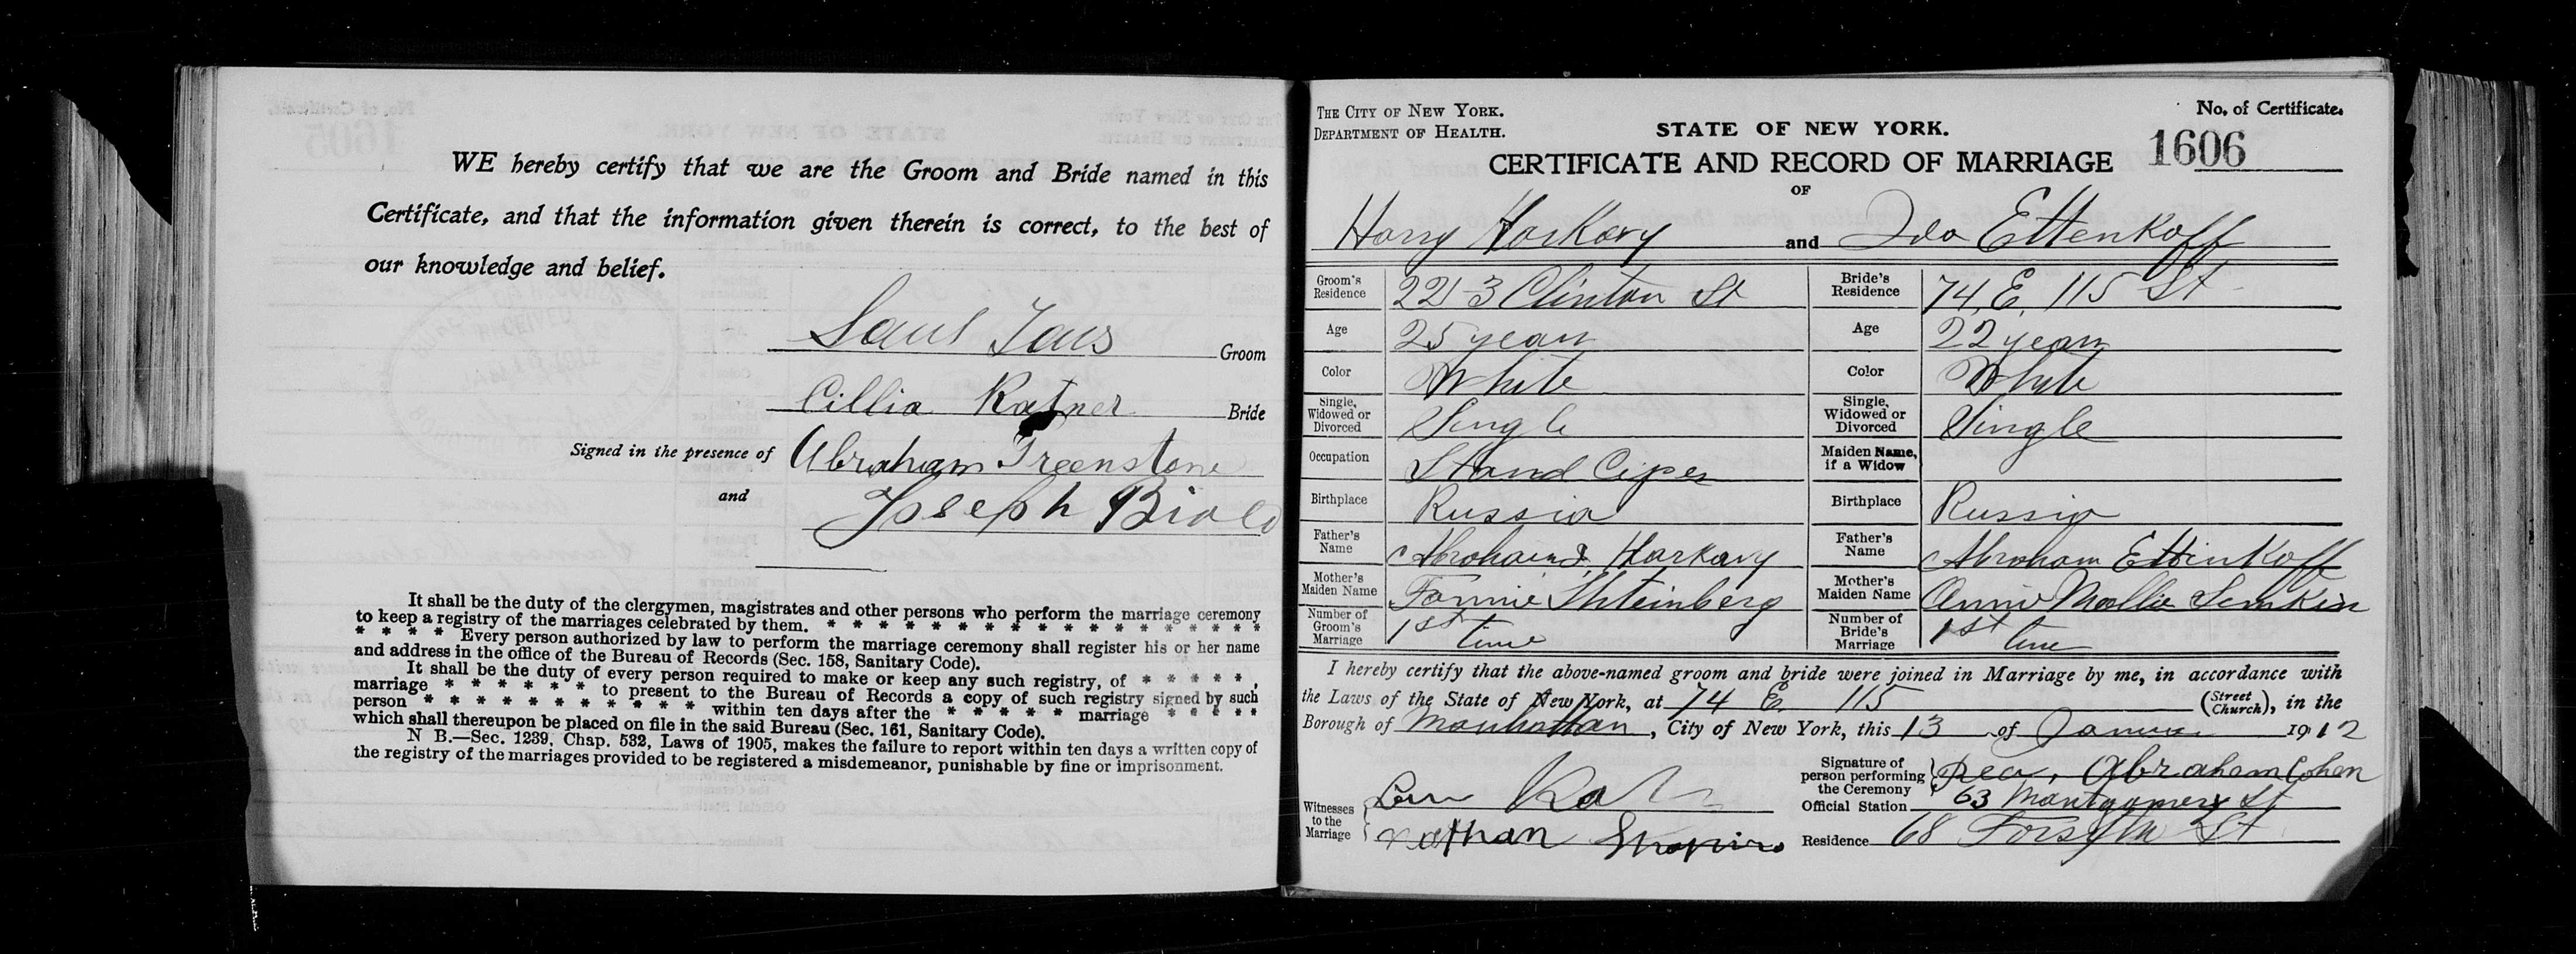 WE hereby certify that we are the Groom and Bride named in this
Certificate, and that the information given therein is correct, to the best of
our knowledge and belief.
Saul
Groom
Cillia Ratner
Bride
Signed in the presence of Abraham Greenstone
and
Joseph
It shall be the duty of the clergymen, magistrates and other persons who perform the marriage ceremony
to keep a registry of the marriages celebrated by them. * * * * * * * * * * * * * * * * *
* * * * Every person authorized by law to perform the marriage ceremony shall register his or her name
and address in the office of the Bureau of Records (Sec. 158, Sanitary Code).
It shall be the duty of every person required to make or keep any such registry, of * * * * * ,
marriage * * * * * * * to present to the Bureau of Records a copy of such registry signed by such
person * * * * * * * * * * * within ten days after the * * * * * marriage * * * * *
which shall thereupon be placed on file in the said Bureau (Sec. 161, Sanitary Code).
N B.—Sec. 1239, Chap. 532, Laws of 1905, makes the failure to report within ten days a written copy of
the registry of the marriages provided to be registered a misdemeanor, punishable by fine or imprisonment.
THE CITY OF NEW YORK.
DEPARTMENT OF HEALTH.
No. of Certificate.
STATE OF NEW YORK.
1606
CERTIFICATE AND RECORD OF MARRIAGE
OF
Harry Harkavy and Ida Ettenkoff
Groom's Residence 223 Clinton St
Bride's Residence 74 E. 115 St
Age 25 years
Age 22 years
Color White
Color White
Single, Widowed or Divorced Single
Single, Widowed or Divorced Single
Occupation Stand
Maiden Name, if a Widow
Birthplace Russia
Birthplace Russia
Father's Name Harkavy
Father's Name Abraham Ettinkoff
Mother's Maiden Name Fannie Shteinberg
Mother's Maiden Name Annie Mollie
Number of Groom's Marriage 1st time
Number of Bride's Marriage 1st time
I hereby certify that the above-named groom and bride were joined in Marriage by me, in accordance with
the Laws of the State of New York, at 74 E 115 (Street Church), in the
Borough of Manhattan, City of New York, this 13 of 1912
Signature of person performing the Ceremony Rev. Abraham Cohen
Official Station 63 Montgomery St
Residence 68 Forsyth St
Witnesses to the Marriage
Nathan Shapiro